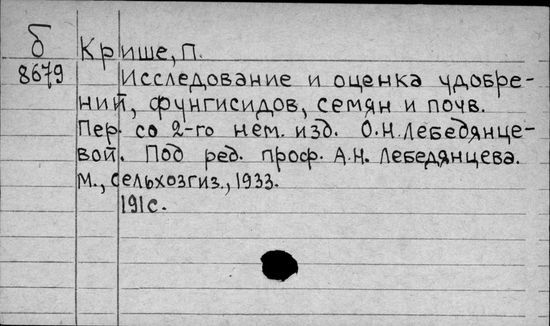 б Крише, П.
8679 Исследование и оценка удобре-
ний, фунгисидов, семян и почв.
Пер. со 2-го нем. изд. О.Н. Лебедянце-
вой. Под ред. проф. А.Н. Лебедянцева.
М., Сельхозгиз., 1933.
191 с.